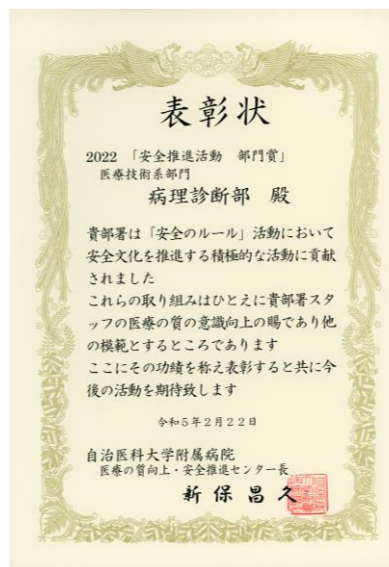 表彰状
2022 「安全推進活動 部門賞」
医療技術系部門
病理診断部 殿
貴部署は「安全のルール」活動において
安全文化を推進する積極的な活動に貢献
されました
これらの取り組みはひとえに貴部署スタ
ッフの医療の質の意識向上の賜であり他
の模範とするところであります
ここにその功績を称え表彰すると共に今
後の活動を期待致します
令和5年2月22日
自治医科大学附属病院
医療の質向上・安全推進センター長
新保昌久